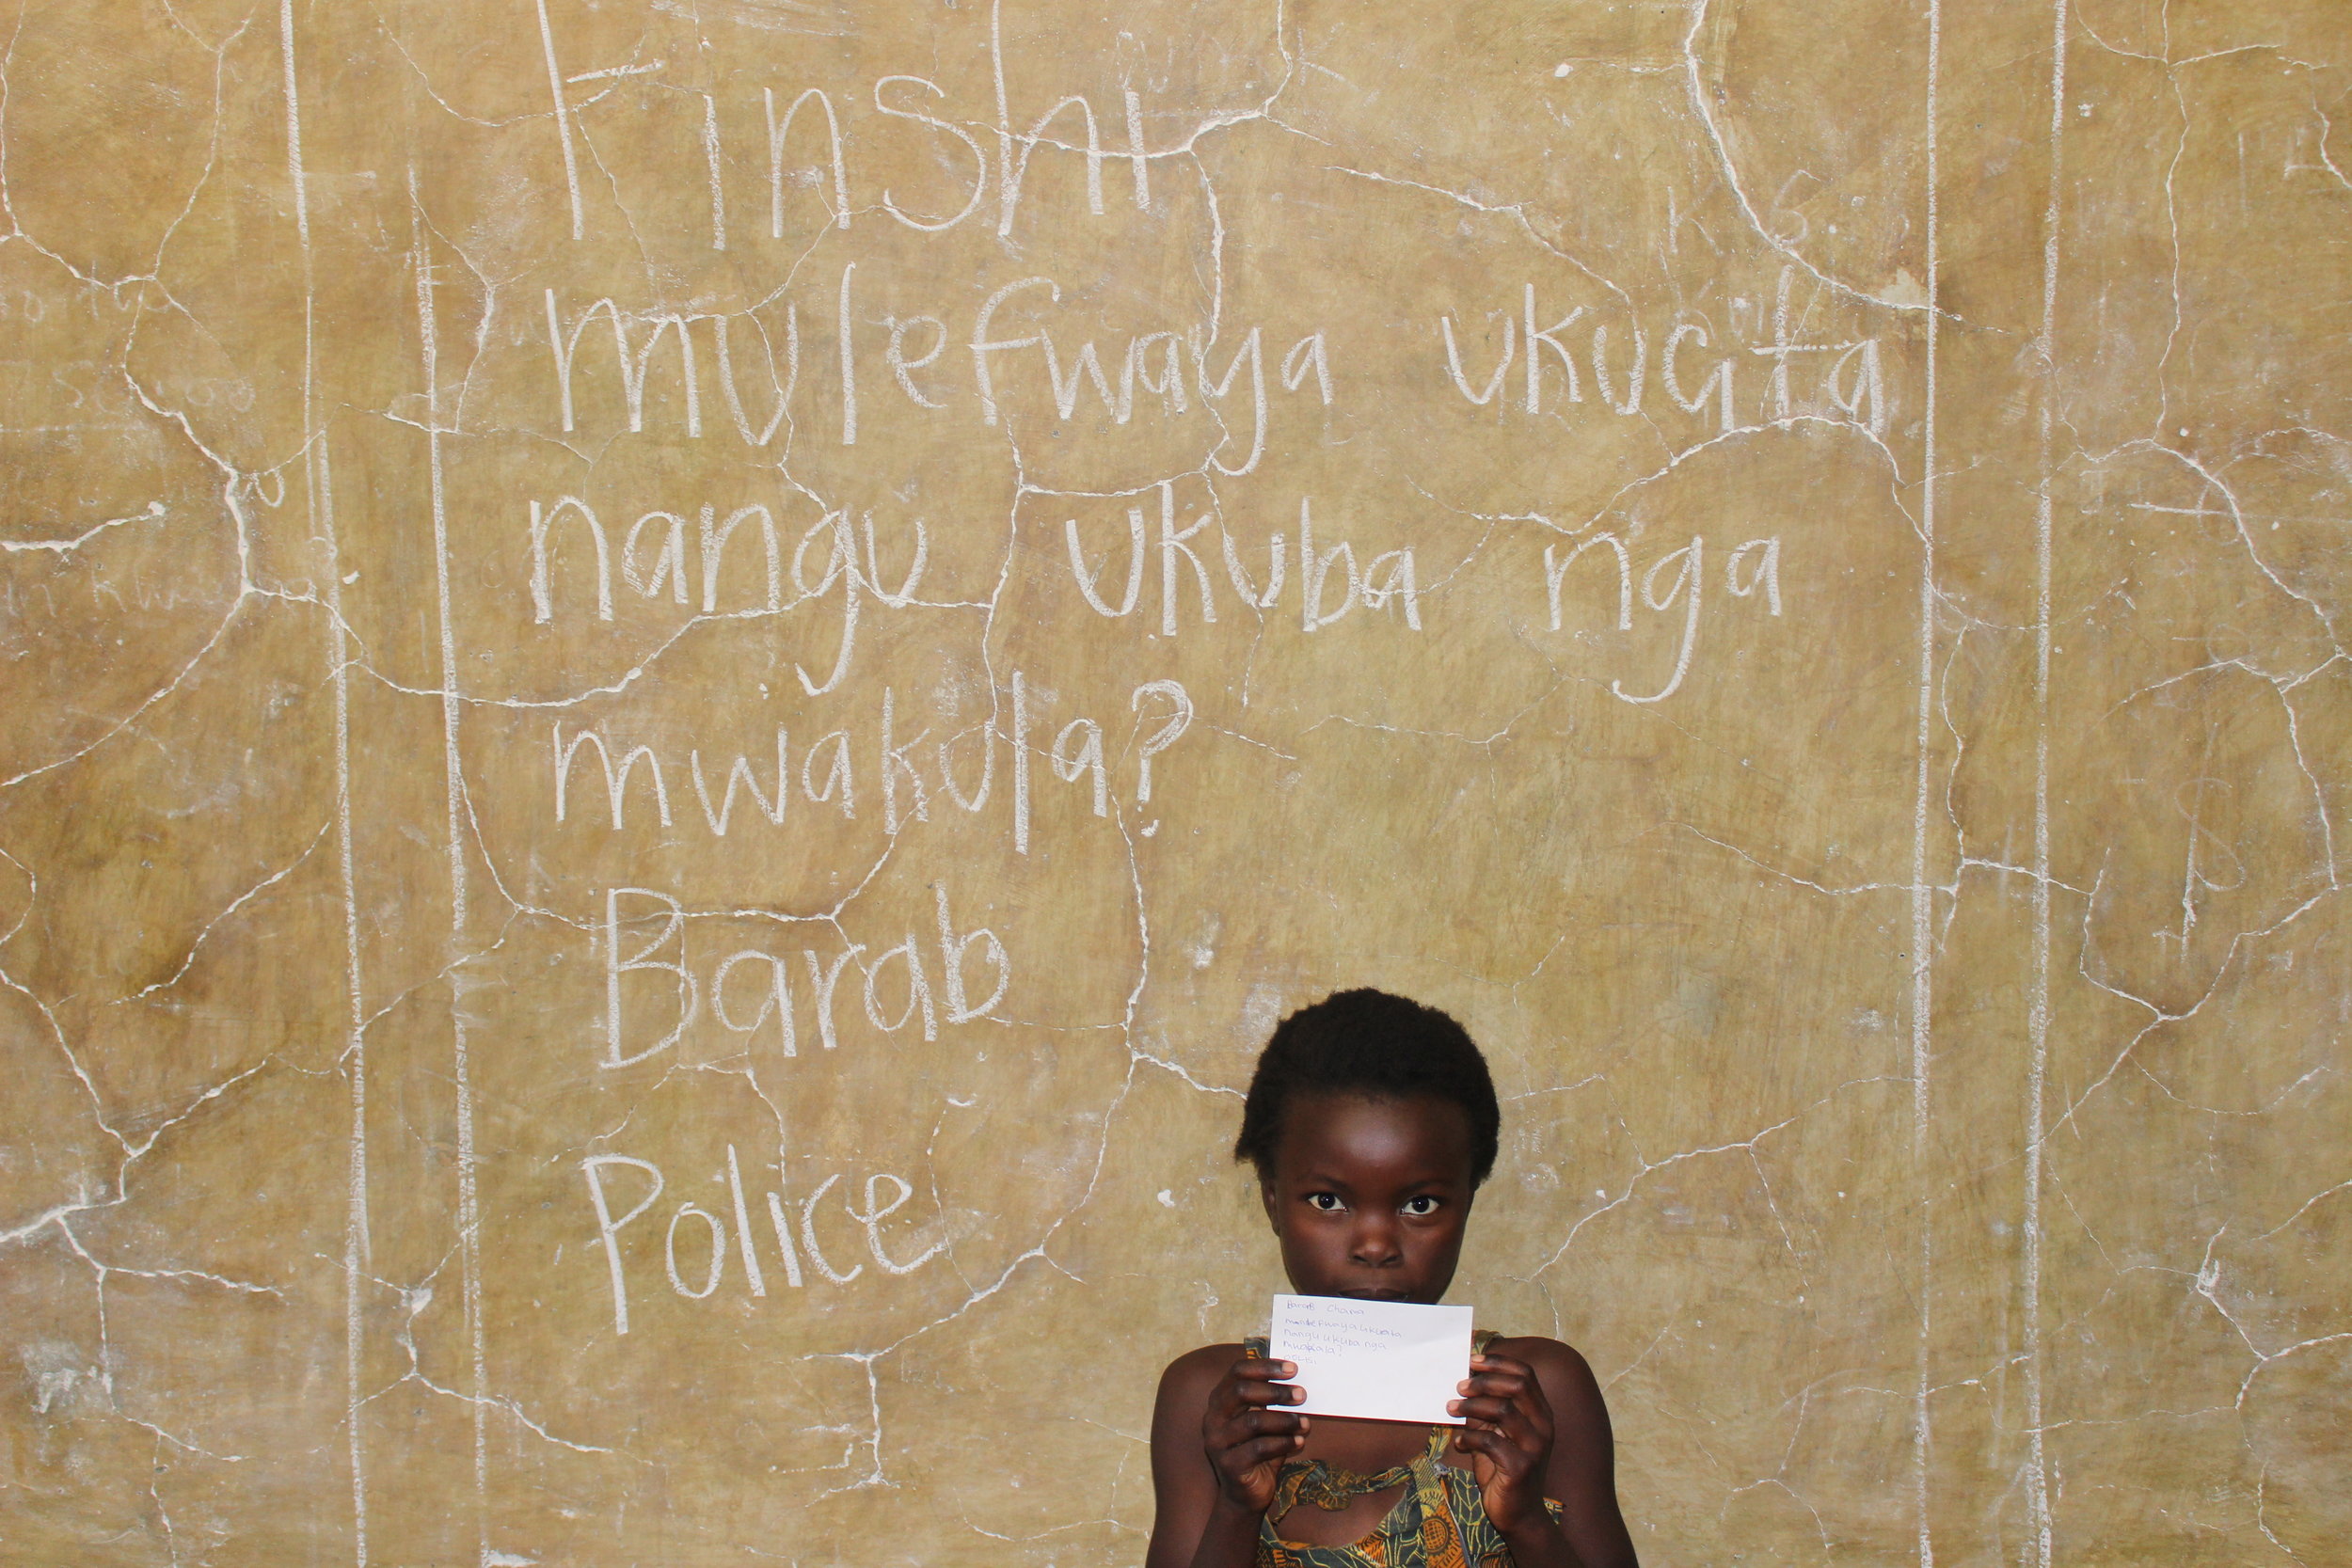 Finshi
mulefwaya ukucita
nangu ukuba nga
mwakula?
Barab
Police
Chama
mulefwaya ukucita
nangu ukuba nga
mwakula?